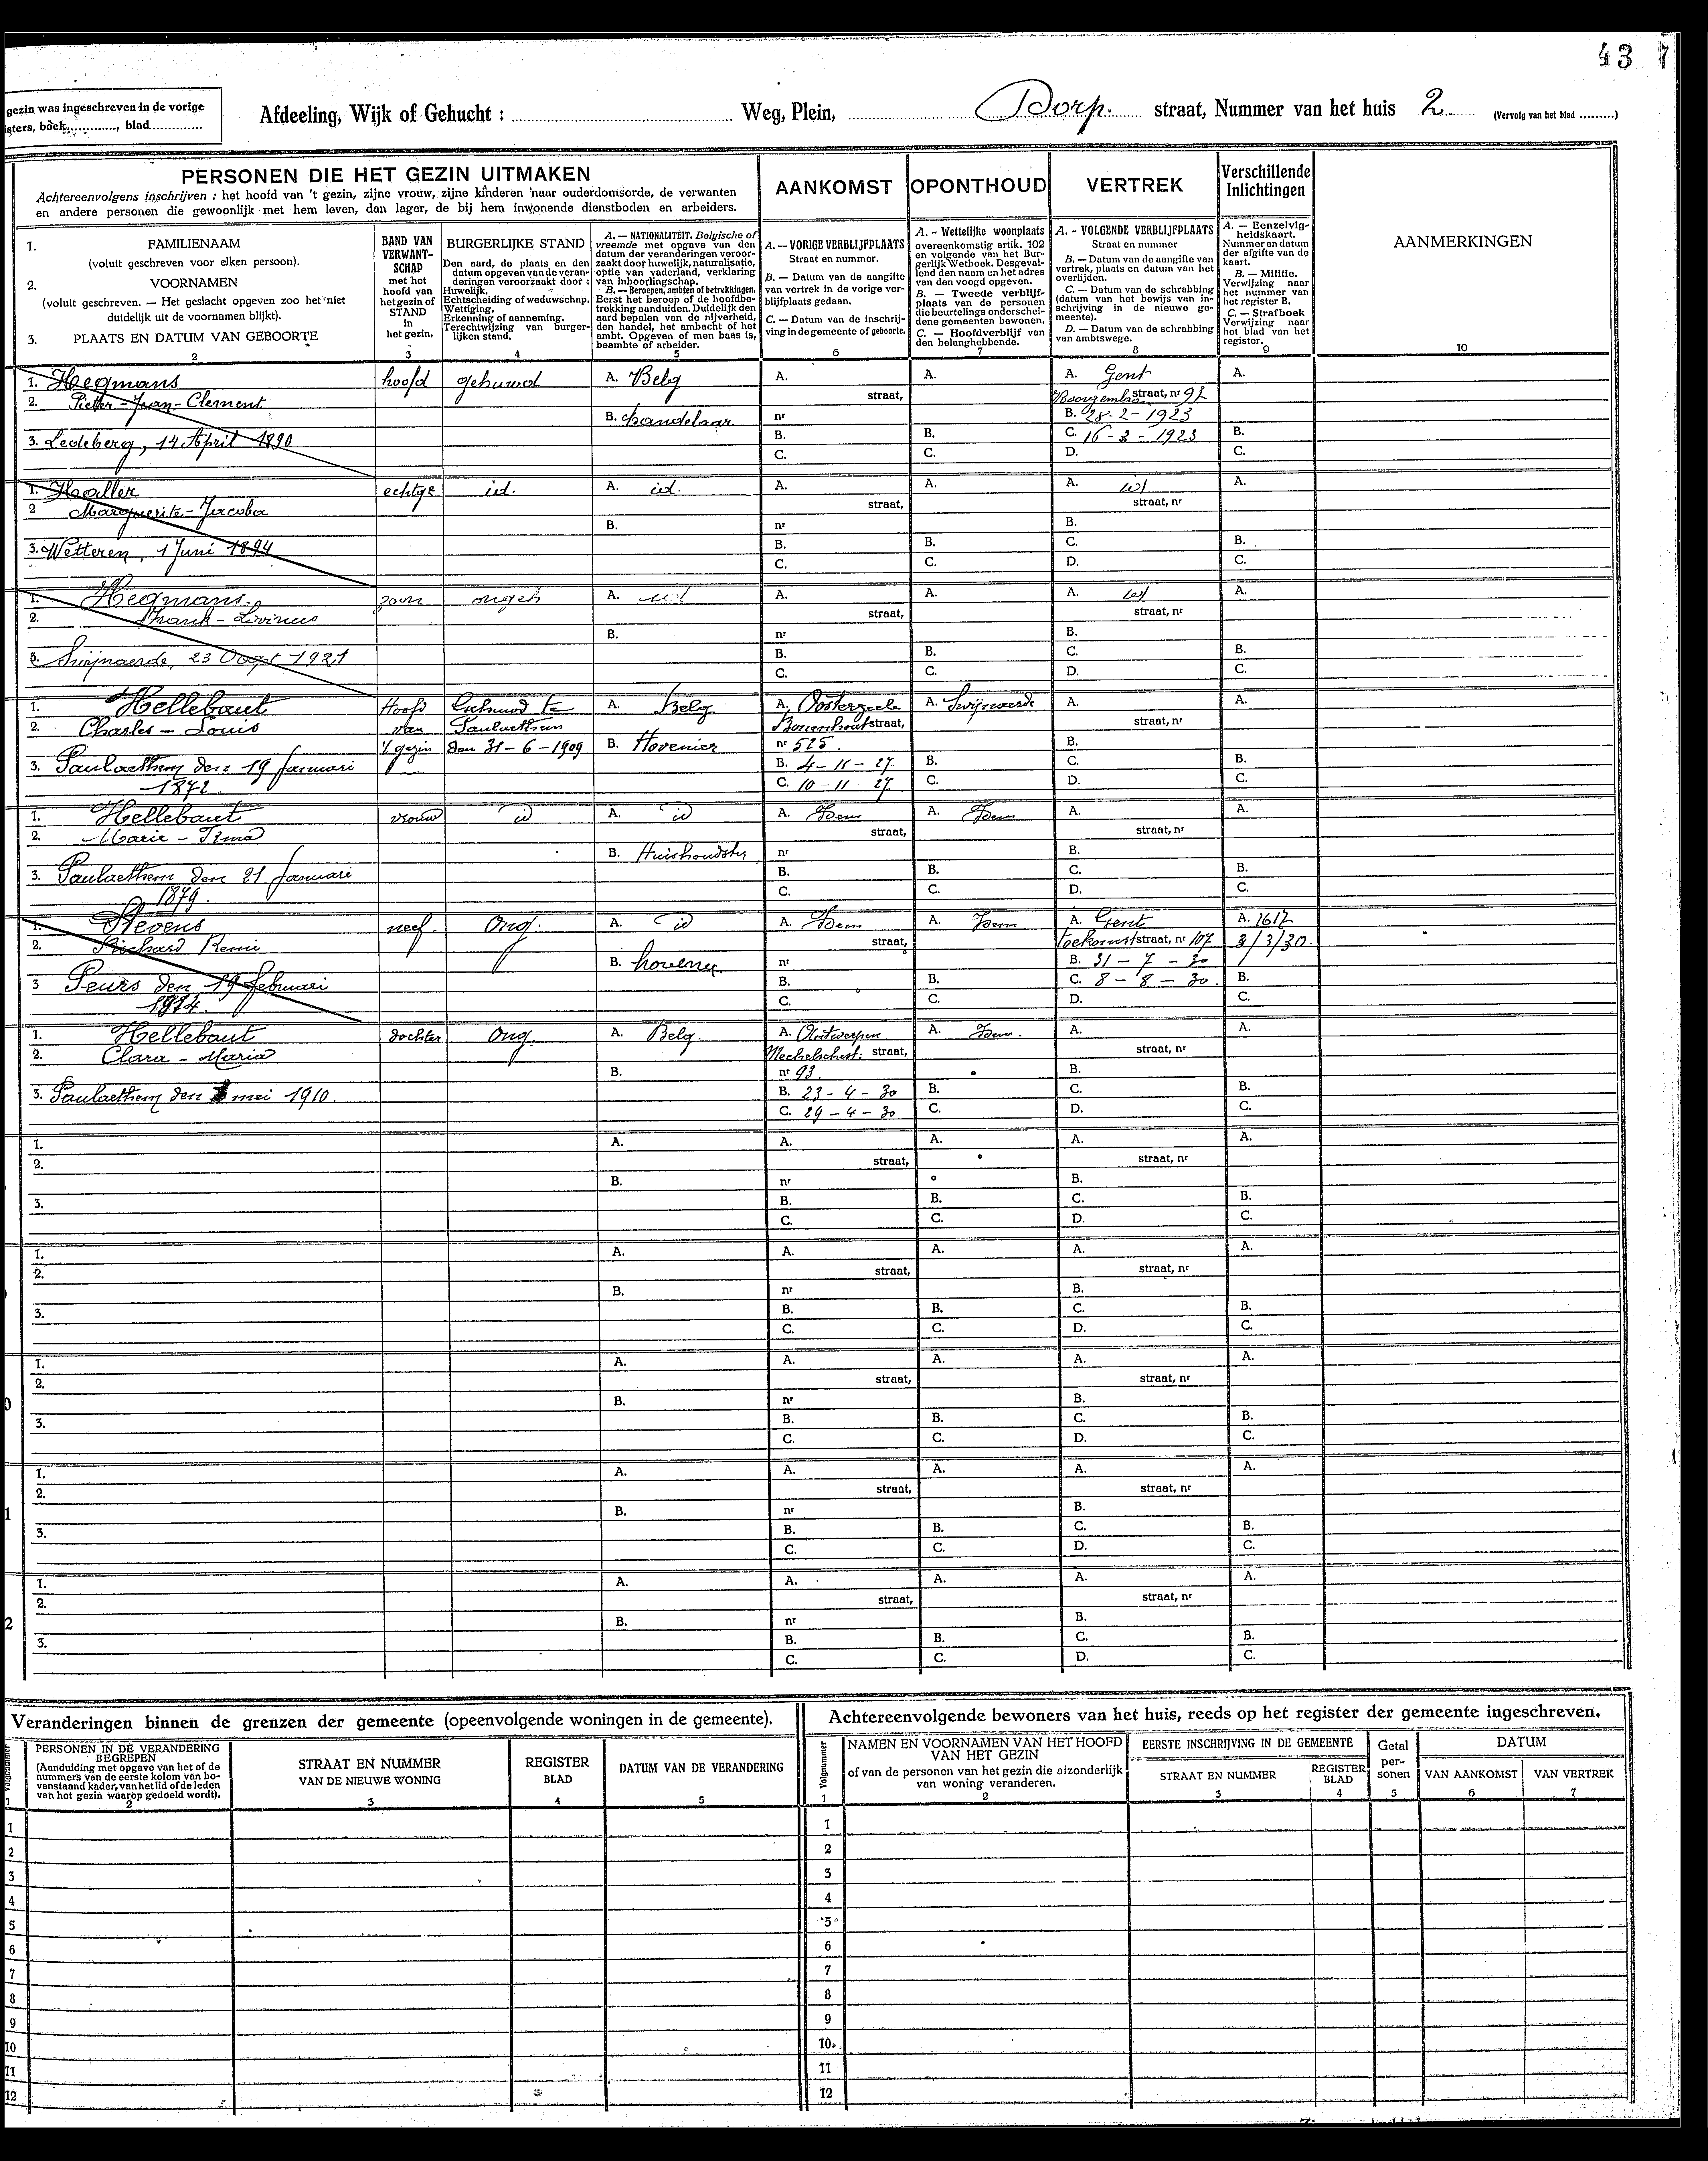 43 7
gezin was ingeschreven in de vorige
isters, boek............, blad..............
Afdeeling, Wijk of Gehucht : .......... Weg, Plein, .......... Dorp. straat, Nummer van het huis 2 (Vervolg van het blad .........)
PERSONEN DIE HET GEZIN UITMAKEN
Achtereenvolgens inschrijven : het hoofd van 't gezin, zijne vrouw, zijne kinderen naar ouderdomsorde, de verwanten
en andere personen die gewoonlijk met hem leven, dan lager, de bij hem inwonende dienstboden en arbeiders.
1. FAMILIENAAM
(voluit geschreven voor elken persoon).
2. VOORNAMEN
(voluit geschreven. — Het geslacht opgeven zoo het niet
duidelijk uit de voornamen blijkt).
3. PLAATS EN DATUM VAN GEBOORTE
2
BAND VAN
VERWANT-
SCHAP
met het
hoofd van
het gezin of
STAND
in
het gezin.
3
BURGERLIJKE STAND
Den aard, de plaats en den
datum opgeven van de veran-
deringen veroorzaakt door :
Huwelijk.
Echtscheiding of weduwschap.
Wettiging.
Erkenning of aanneming.
Terechtwijzing van burger-
lijken stand.
4
A. — NATIONALITEIT. Belgische of
vreemde met opgave van den
datum der veranderingen veroor-
zaakt door huwelijk, naturalisatie,
optie van vaderland, verklaring
van inboorlingschap.
B. — Beroepen, ambten of betrekkingen.
Eerst het beroep of de hoofdbe-
trekking aanduiden. Duidelijk den
aard bepalen van de nijverheid,
den handel, het ambacht of het
ambt. Opgeven of men baas is,
beambte of arbeider.
5
AANKOMST
A. — VORIGE VERBLIJFPLAATS
Straat en nummer.
B. — Datum van de aangifte
van vertrek in de vorige ver-
blijfplaats gedaan.
C. — Datum van de inschrij-
ving in de gemeente of geboorte.
6
OPONTHOUD
A. - Wettelijke woonplaats
overeenkomstig artik. 102
en volgende van het Bur-
gerlijk Wetboek. Desgeval-
lend den naam en het adres
van den voogd opgeven.
B. — Tweede verblijf-
plaats van de personen
die beurtelings onderschei-
dene gemeenten bewonen.
C. — Hoofdverblijf van
den belanghebbende.
7
VERTREK
A. - VOLGENDE VERBLIJFPLAATS
Straat en nummer
B. — Datum van de aangifte van
vertrek, plaats en datum van het
overlijden.
C. — Datum van de schrabbing
(datum van het bewijs van in-
schrijving in de nieuwe ge-
meente).
D. — Datum van de schrabbing
van ambtswege.
8
Verschillende
Inlichtingen
A. — Eenzelvig-
heidskaart.
Nummer en datum
der afgifte van de
kaart.
B. — Militie.
Verwijzing naar
het nummer van
het register B.
C. — Strafboek
Verwijzing naar
het blad van het
register.
9
AANMERKINGEN
10
1. Hegmans hoofd gehuwd A. Belg A. A. A. Gent A.
2. Pieter-Jean-Clement straat, straat, nr 92
B. handelaar nr B. 28-2-1923
3. Ledeberg, 14 April 1890 B. B. C. 16-3-1923 B.
C. C. D. C.
1. Haller echtge id. A. id. A. A. A. id A.
2 Marguerite-Jacoba straat, straat, nr
B. nr B.
3. Wetteren, 1 Juni 1894 B. B. C. B.
C. C. D. C.
1. Hegmans. zoon ongeh A. id A. A. A. id A.
2. Frank-Livinus straat, straat, nr
B. nr B.
3. Swijnaerde, 23 Oogst 1921 B. B. C. B.
C. C. D. C.
1. Hellebaut Hoofd Gehuwd te A. Belg A. Oosterzeele A. Swijnaerde A. A.
2. Charles - Louis van Paulaethem straat, straat, nr
't gezin den 31-6-1909 B. Hovenier nr 525. B.
3. Paulaethem den 19 Januari B. 4-11-27 B. C. B.
1872. C. 10-11 27. C. D. C.
1. Hellebaut vrouw id A. id A. Idem A. Idem A. A.
2. Marie - Irma straat, straat, nr
B. Huishoudster nr B.
3. Paulaethem den 21 Januari B. B. C. B.
1879. C. C. D. C.
1. Stevens neef. Ong. A. id A. Idem A. Idem A. Gent A. 1612
2. Richard Remi straat, Toekomststraat, nr 107 3/3/30.
B. hovenier nr B. 31-7-30
3 Peurs den 19 februari B. B. C. 8-8-30. B.
1914. C. C. D. C.
1. Hellebaut dochter Ong. A. Belg. A. Antwerpen A. Idem. A. A.
2. Clara - Maria Mechelschest: straat, straat, nr
B. nr 93. B.
3. Paulaethem den 1 mei 1910. B. 23-4-30 B. C. B.
C. 29-4-30 C. D. C.
1. A. A. A. A. A.
2. straat, straat, nr
B. nr B.
3. B. B. C. B.
C. C. D. C.
1. A. A. A. A. A.
2. straat, straat, nr
B. nr B.
3. B. B. C. B.
C. C. D. C.
1. A. A. A. A. A.
2. straat, straat, nr
0 B. nr B.
3. B. B. C. B.
C. C. D. C.
1. A. A. A. A. A.
2. straat, straat, nr
1 B. nr B.
3. B. B. C. B.
C. C. D. C.
1. A. A. A. A. A.
2. straat, straat, nr
2 B. nr B.
3. B. B. C. B.
C. C. D. C.
Veranderingen binnen de grenzen der gemeente (opeenvolgende woningen in de gemeente).
Volgnummer
1
PERSONEN IN DE VERANDERING
BEGREPEN
(Aanduiding met opgave van het of de
nummers van de eerste kolom van bo-
venstaand kader, van het lid of de leden
van het gezin waarop gedoeld wordt).
2
STRAAT EN NUMMER
VAN DE NIEUWE WONING
3
REGISTER
BLAD
4
DATUM VAN DE VERANDERING
5
1
2
3
4
5
6
7
8
9
10
11
12
Achtereenvolgende bewoners van het huis, reeds op het register der gemeente ingeschreven.
Volgnummer
1
NAMEN EN VOORNAMEN VAN HET HOOFD
VAN HET GEZIN
of van de personen van het gezin die afzonderlijk
van woning veranderen.
2
EERSTE INSCHRIJVING IN DE GEMEENTE
STRAAT EN NUMMER
3
REGISTER
BLAD
4
Getal
per-
sonen
5
DATUM
VAN AANKOMST
6
VAN VERTREK
7
1
2
3
4
5
6
7
8
9
10
11
12